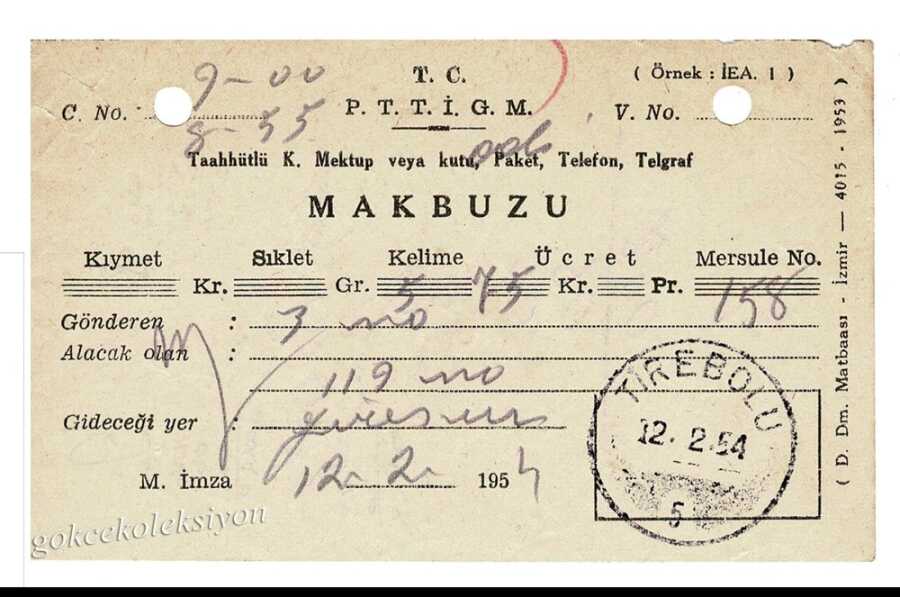 9-00
T. C.
( Örnek : İEA. 1 )
C. No. P. T. T. İ. G. M. V. No.
8-55
Taahhütlü K. Mektup veya kutu, Paket, Telefon, Telgraf
MAKBUZU
Kıymet Sıklet Kelime Ücret Mersule No.
Kr. Gr. 5 75 Kr. Pr. 158
Gönderen : 3 no
Alacak olan :
119 no
Gideceği yer : Giresun
M. İmza 12.2. 1954
TİREBOLU
12. 2.54
5
( D. Dm. Matbaası - İzmir — 4015 - 1953 )
gokcekoleksiyon